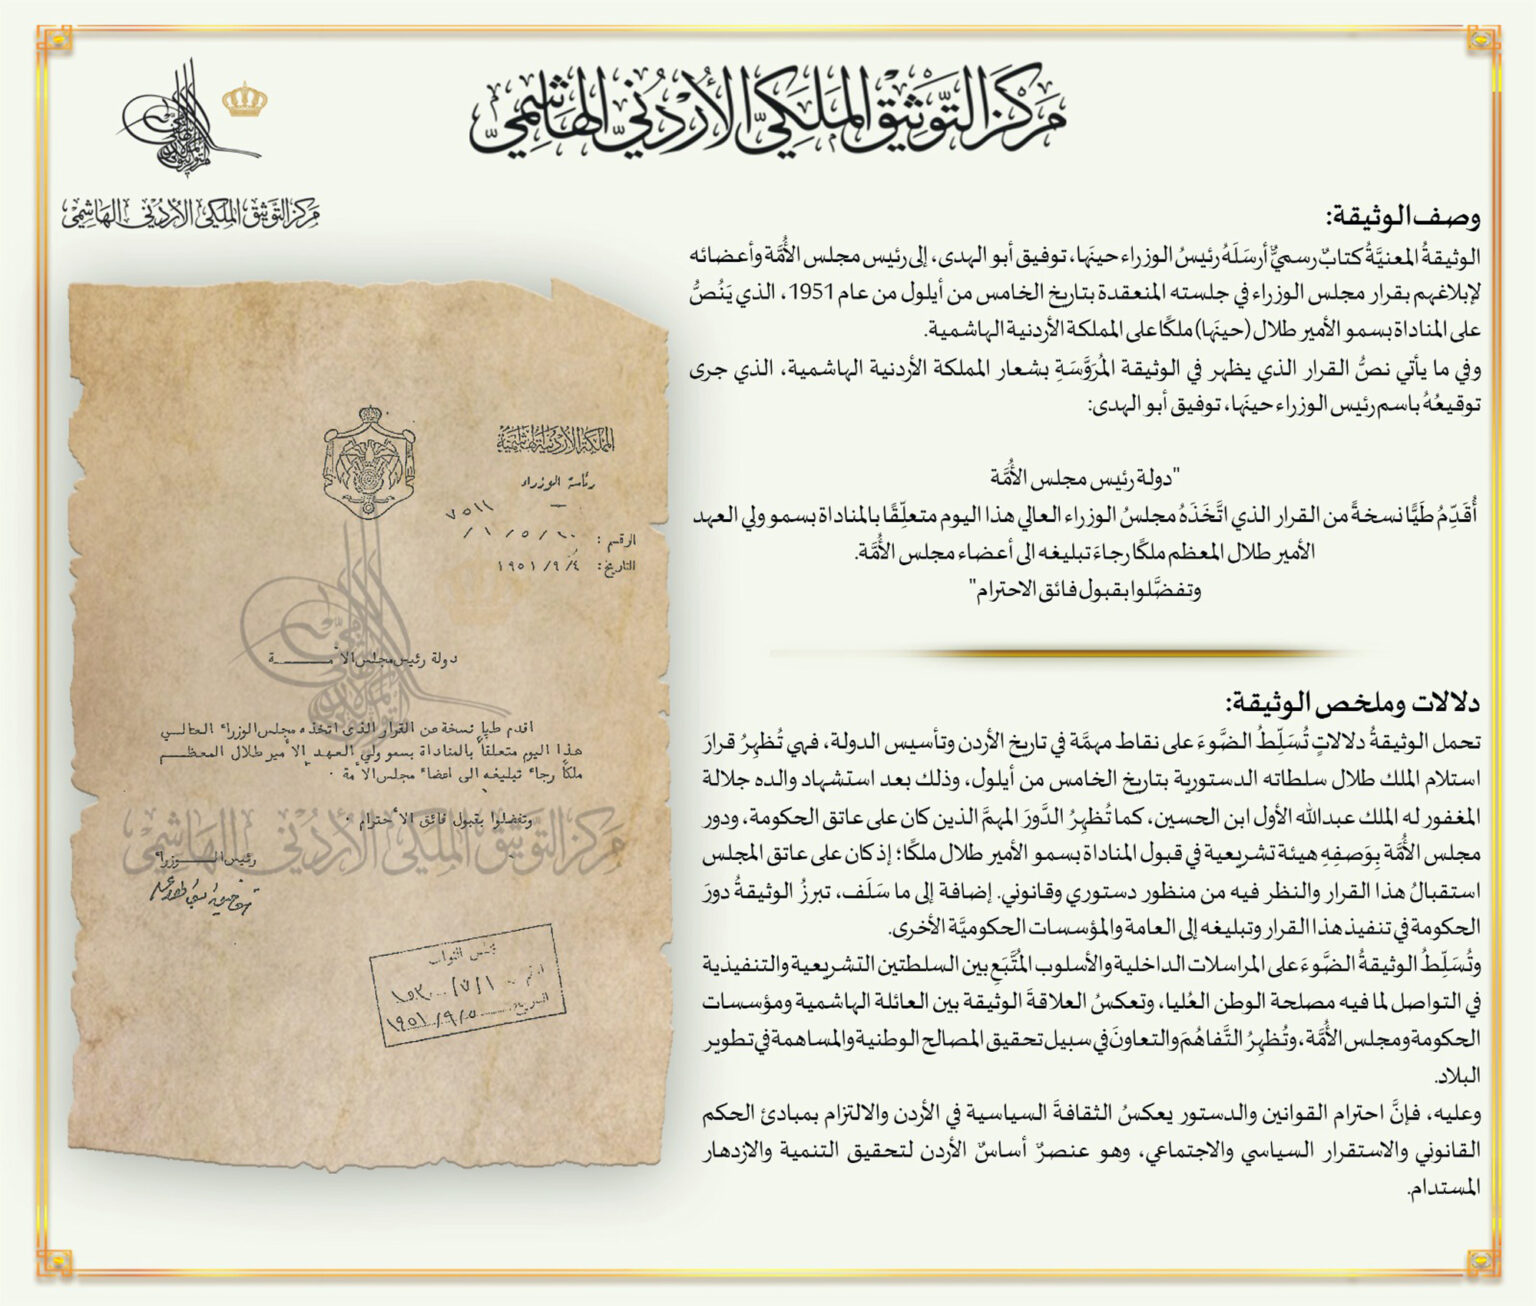 مركز التوثيق الملكي الأردني الهاشمي
مركز التوثيق الملكي الأردني الهاشمي
وصف الوثيقة:
الوثيقةُ المعنيَّةُ كتابٌ رسميٌّ أرسَلَهُ رئيسُ الوزراء حينَها، توفيق أبو الهدى، إلى رئيس مجلس الأُمَّة وأعضائه
لإبلاغهم بقرار مجلس الوزراء في جلسته المنعقدة بتاريخ الخامس من أيلول من عام 1951، الذي يَنُصُّ
على المناداة بسمو الأمير طلال (حينَها) ملكًا على المملكة الأردنية الهاشمية.
وفي ما يأتي نصُّ القرار الذي يظهر في الوثيقة المُرَوَّسَةِ بشعار المملكة الأردنية الهاشمية، الذي جرى
توقيعُهُ باسم رئيس الوزراء حينَها، توفيق أبو الهدى:
"دولة رئيس مجلس الأُمَّة
أُقَدِّمُ طَيًّا نسخةً من القرار الذي اتَّخَذَهُ مجلسُ الوزراء العالي هذا اليوم متعلِّقًا بالمناداة بسمو ولي العهد
الأمير طلال المعظم ملكًا رجاءَ تبليغه الى أعضاء مجلس الأُمَّة.
وتفضَّلوا بقبول فائق الاحترام"
دلالات وملخص الوثيقة:
تحمل الوثيقةُ دلالاتٍ تُسَلِّطُ الضَّوءَ على نقاط مهمَّة في تاريخ الأردن وتأسيس الدولة، فهي تُظهِرُ قرارَ
استلام الملك طلال سلطاته الدستورية بتاريخ الخامس من أيلول، وذلك بعد استشهاد والده جلالة
المغفور له الملك عبدالله الأول ابن الحسين، كما تُظهِرُ الدَّورَ المهمَّ الذين كان على عاتق الحكومة، ودور
مجلس الأُمَّة بِوَصفِهِ هيئة تشريعية في قبول المناداة بسمو الأمير طلال ملكًا؛ إذ كان على عاتق المجلس
استقبالُ هذا القرار والنظر فيه من منظور دستوري وقانوني. إضافة إلى ما سَلَف، تبرزُ الوثيقةُ دورَ
الحكومة في تنفيذ هذا القرار وتبليغه إلى العامة والمؤسسات الحكوميَّة الأخرى.
وتُسَلِّطُ الوثيقةُ الضَّوءَ على المراسلات الداخلية والأسلوب المُتَّبَعِ بين السلطتين التشريعية والتنفيذية
في التواصل لما فيه مصلحة الوطن العُليا، وتعكسُ العلاقةَ الوثيقة بين العائلة الهاشمية ومؤسسات
الحكومة ومجلس الأُمَّة، وتُظهِرُ التَّفاهُمَ والتعاونَ في سبيل تحقيق المصالح الوطنية والمساهمة في تطوير
البلاد.
وعليه، فإنَّ احترام القوانين والدستور يعكسُ الثقافةَ السياسية في الأردن والالتزام بمبادئ الحكم
القانوني والاستقرار السياسي والاجتماعي، وهو عنصرٌ أساسٌ الأردن لتحقيق التنمية والازدهار
المستدام.
المملكة الأردنية الهاشمية
رئاسة الوزراء
٧٥١١
الرقم: ٦٠ / ٥ / ١ /
التاريخ: ٤ / ٩ / ١٩٥١
دولة رئيس مجلس الأمـــة
اقدم طيا نسخة من القرار الذى اتخذه مجلس الوزراء العالي
هذا اليوم متعلقاً بالمناداة بسمو ولي العهد الأمير طلال المعظم
ملكاً رجاء تبليغه الى اعضاء مجلس الأمة .
وتفضلوا بقبول فائق الأحترام .
مركز التوثيق الملكي الأردني الهاشمي
رئيس الــوزراء
مجلس النواب
الرقم
التاريخ ٥/٩/١٩٥١